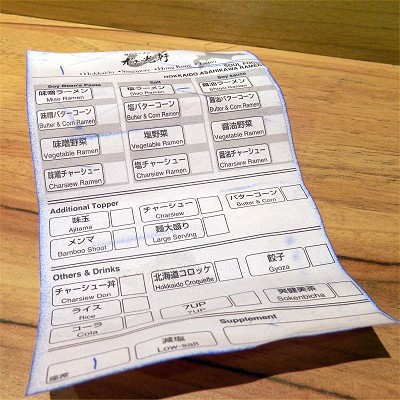 •Hokkaido •Singapore •Hong Kong •Taipei
SOUL FOO
HOKKAIDO ASAHIKAWA RAMEN
Soy Bean's Paste
Salt
Soy sauce
味噌ラーメン
Miso Ramen
塩ラーメン
Shio Ramen
醤油ラーメン
Shoyu Ramen
味噌バターコーン
Butter & Corn Ramen
塩バターコーン
Butter & Corn Ramen
醤油バターコーン
Butter & Corn Ramen
味噌野菜
Vegetable Ramen
塩野菜
Vegetable Ramen
醤油野菜
Vegetable Ramen
味噌チャーシュー
Charsiew Ramen
塩チャーシュー
Charsiew Ramen
醤油チャーシュー
Charsiew Ramen
Additional Topper
味玉
Ajitama
チャーシュー
Charsiew
バターコーン
Butter & Corn
メンマ
Bamboo Shoot
麺大盛り
Large Serving
Others & Drinks
チャーシュー丼
Charsiew Don
北海道コロッケ
Hokkaido Croquette
餃子
Gyoza
ライス
Rice
7UP
7UP
爽健美茶
Sokenbicha
コーラ
Cola
Supplement
減塩
Low-salt
座席